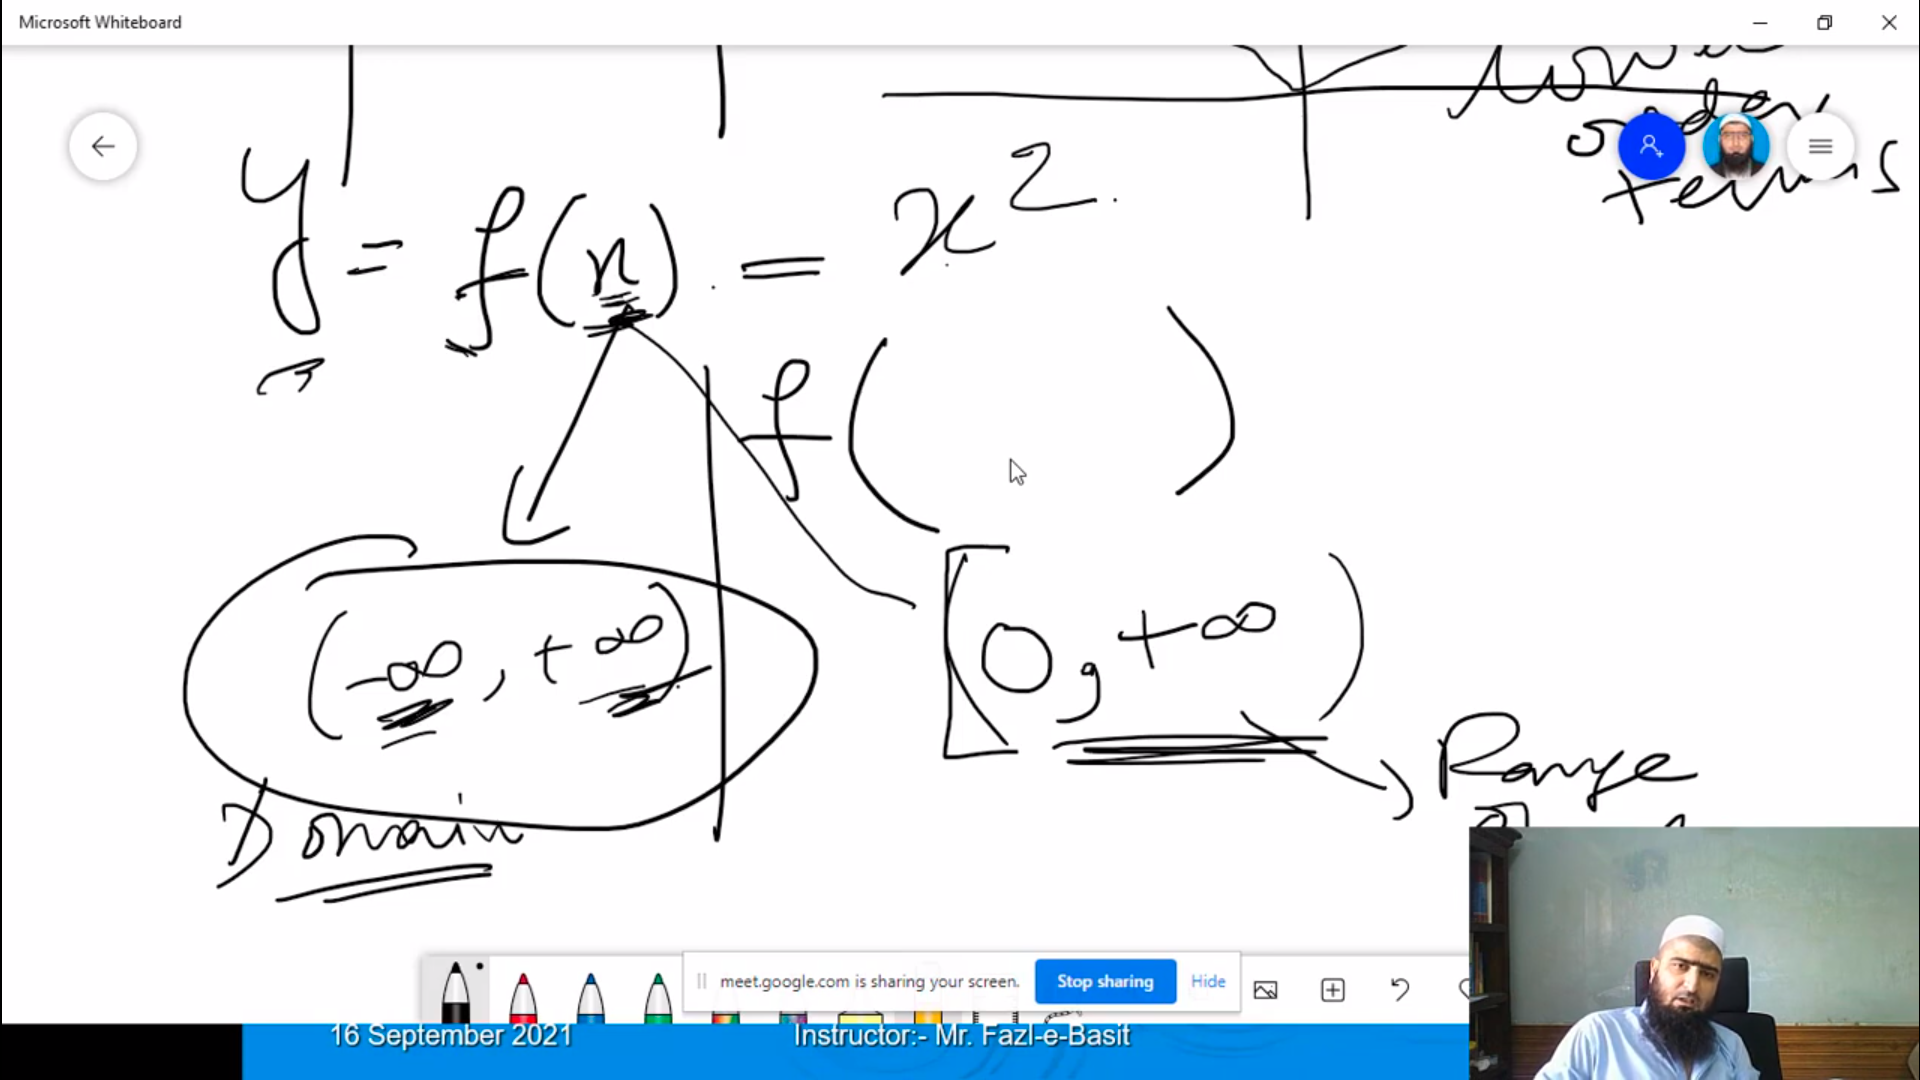 Microsoft Whiteboard
lower
order
terms
y = f(x) = x².
f( )
(-∞, +∞)
[0, +∞)
Range
Domain
meet.google.com is sharing your screen.
Stop sharing
Hide
16 September 2021
Instructor:- Mr. Fazl-e-Basit